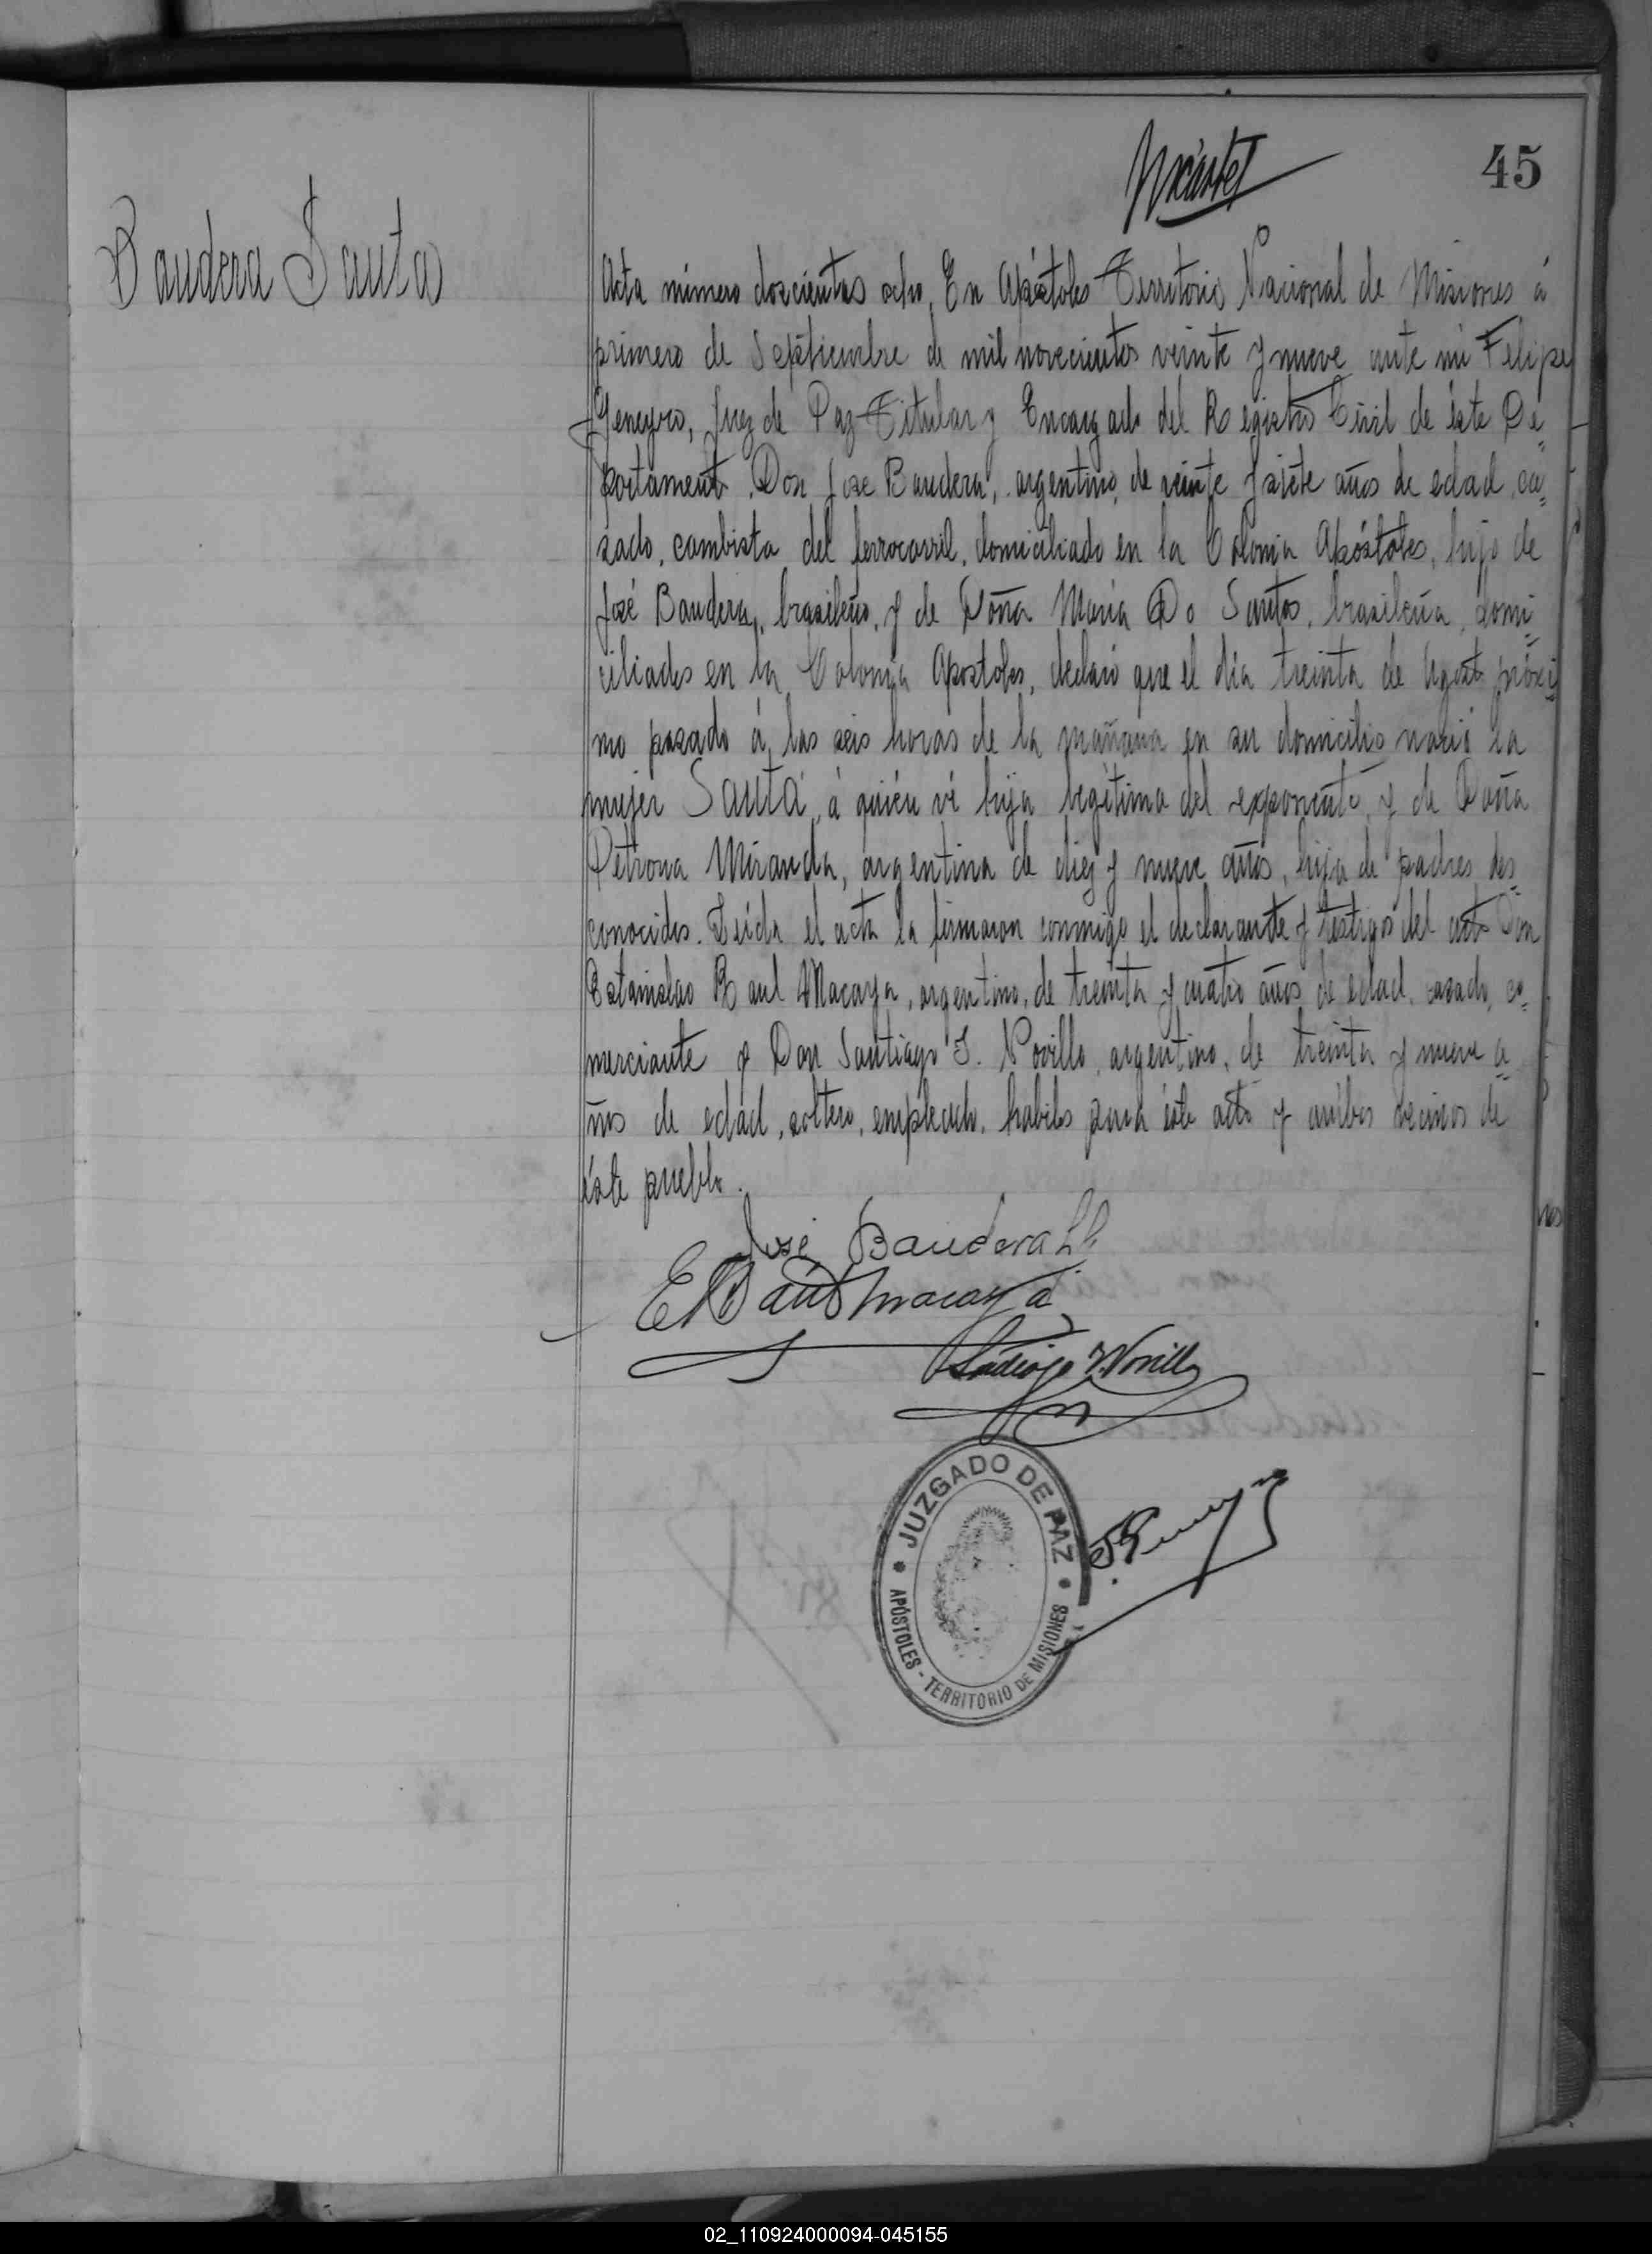 45
Bandera Santa
Acta número doscientos ocho. En Apóstoles Territorio Nacional de Misiones á
primero de Septiembre de mil novecientos veinte y nueve ante mi Felipe
Geneyro, Juez de Paz Titular y Encargado del Registro Civil de éste De=
partamento. Don Jose Bandera, argentino, de veinte y siete años de edad, ca=
sado, cambista del ferrocarril, domiciliado en la Colonia Apóstoles, hijo de
José Bandera, brasileño, y de Doña Maria Do Santos, brasileña, domi=
ciliados en la Colonia Apostoles, declaró que el dia treinta de Agosto próxi=
mo pasado á las seis horas de la mañana en su domicilio nació la
mujer Santa, á quién vi hija legitima del exponente y de Doña
Petrona Miranda, argentina de diez y nueve años, hija de padres des=
conocidos. Leida el acta la firmaron conmigo el declarante y testigos del acto Don
Estanislao Raul Macaya, argentino, de treinta y cuatro años de edad, casado, co=
merciante y Don Santiago I. Novillo, argentino, de treinta y nueve a=
ños de edad, soltero, empleado, habiles para éste acto y ambos vecinos de
éste pueblo.
José Bandera
E Raul Macaya
Santiago I. Novillo
JUZGADO DE PAZ
APÓSTOLES - TERRITORIO DE MISIONES
02_110924000094-045155